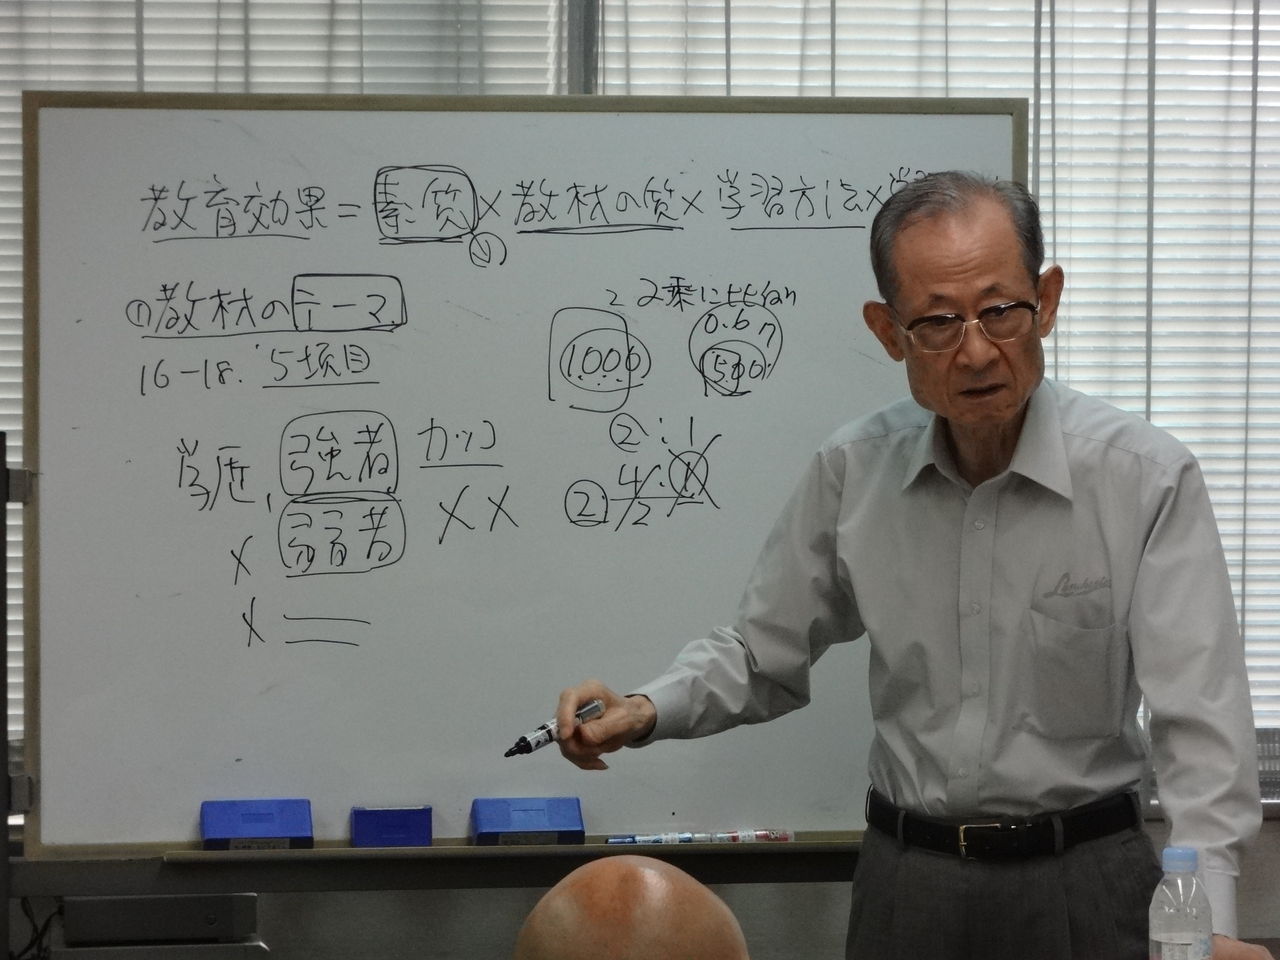 教育効果=素質×教材の質×学習方法×学
①教材のテーマ
16-18. 5項目
2 2乗に比例
0.6
1000 500
学歴, 強者 カッコ
② : 1
弱者 ××
×
② 4/2 : 1
×